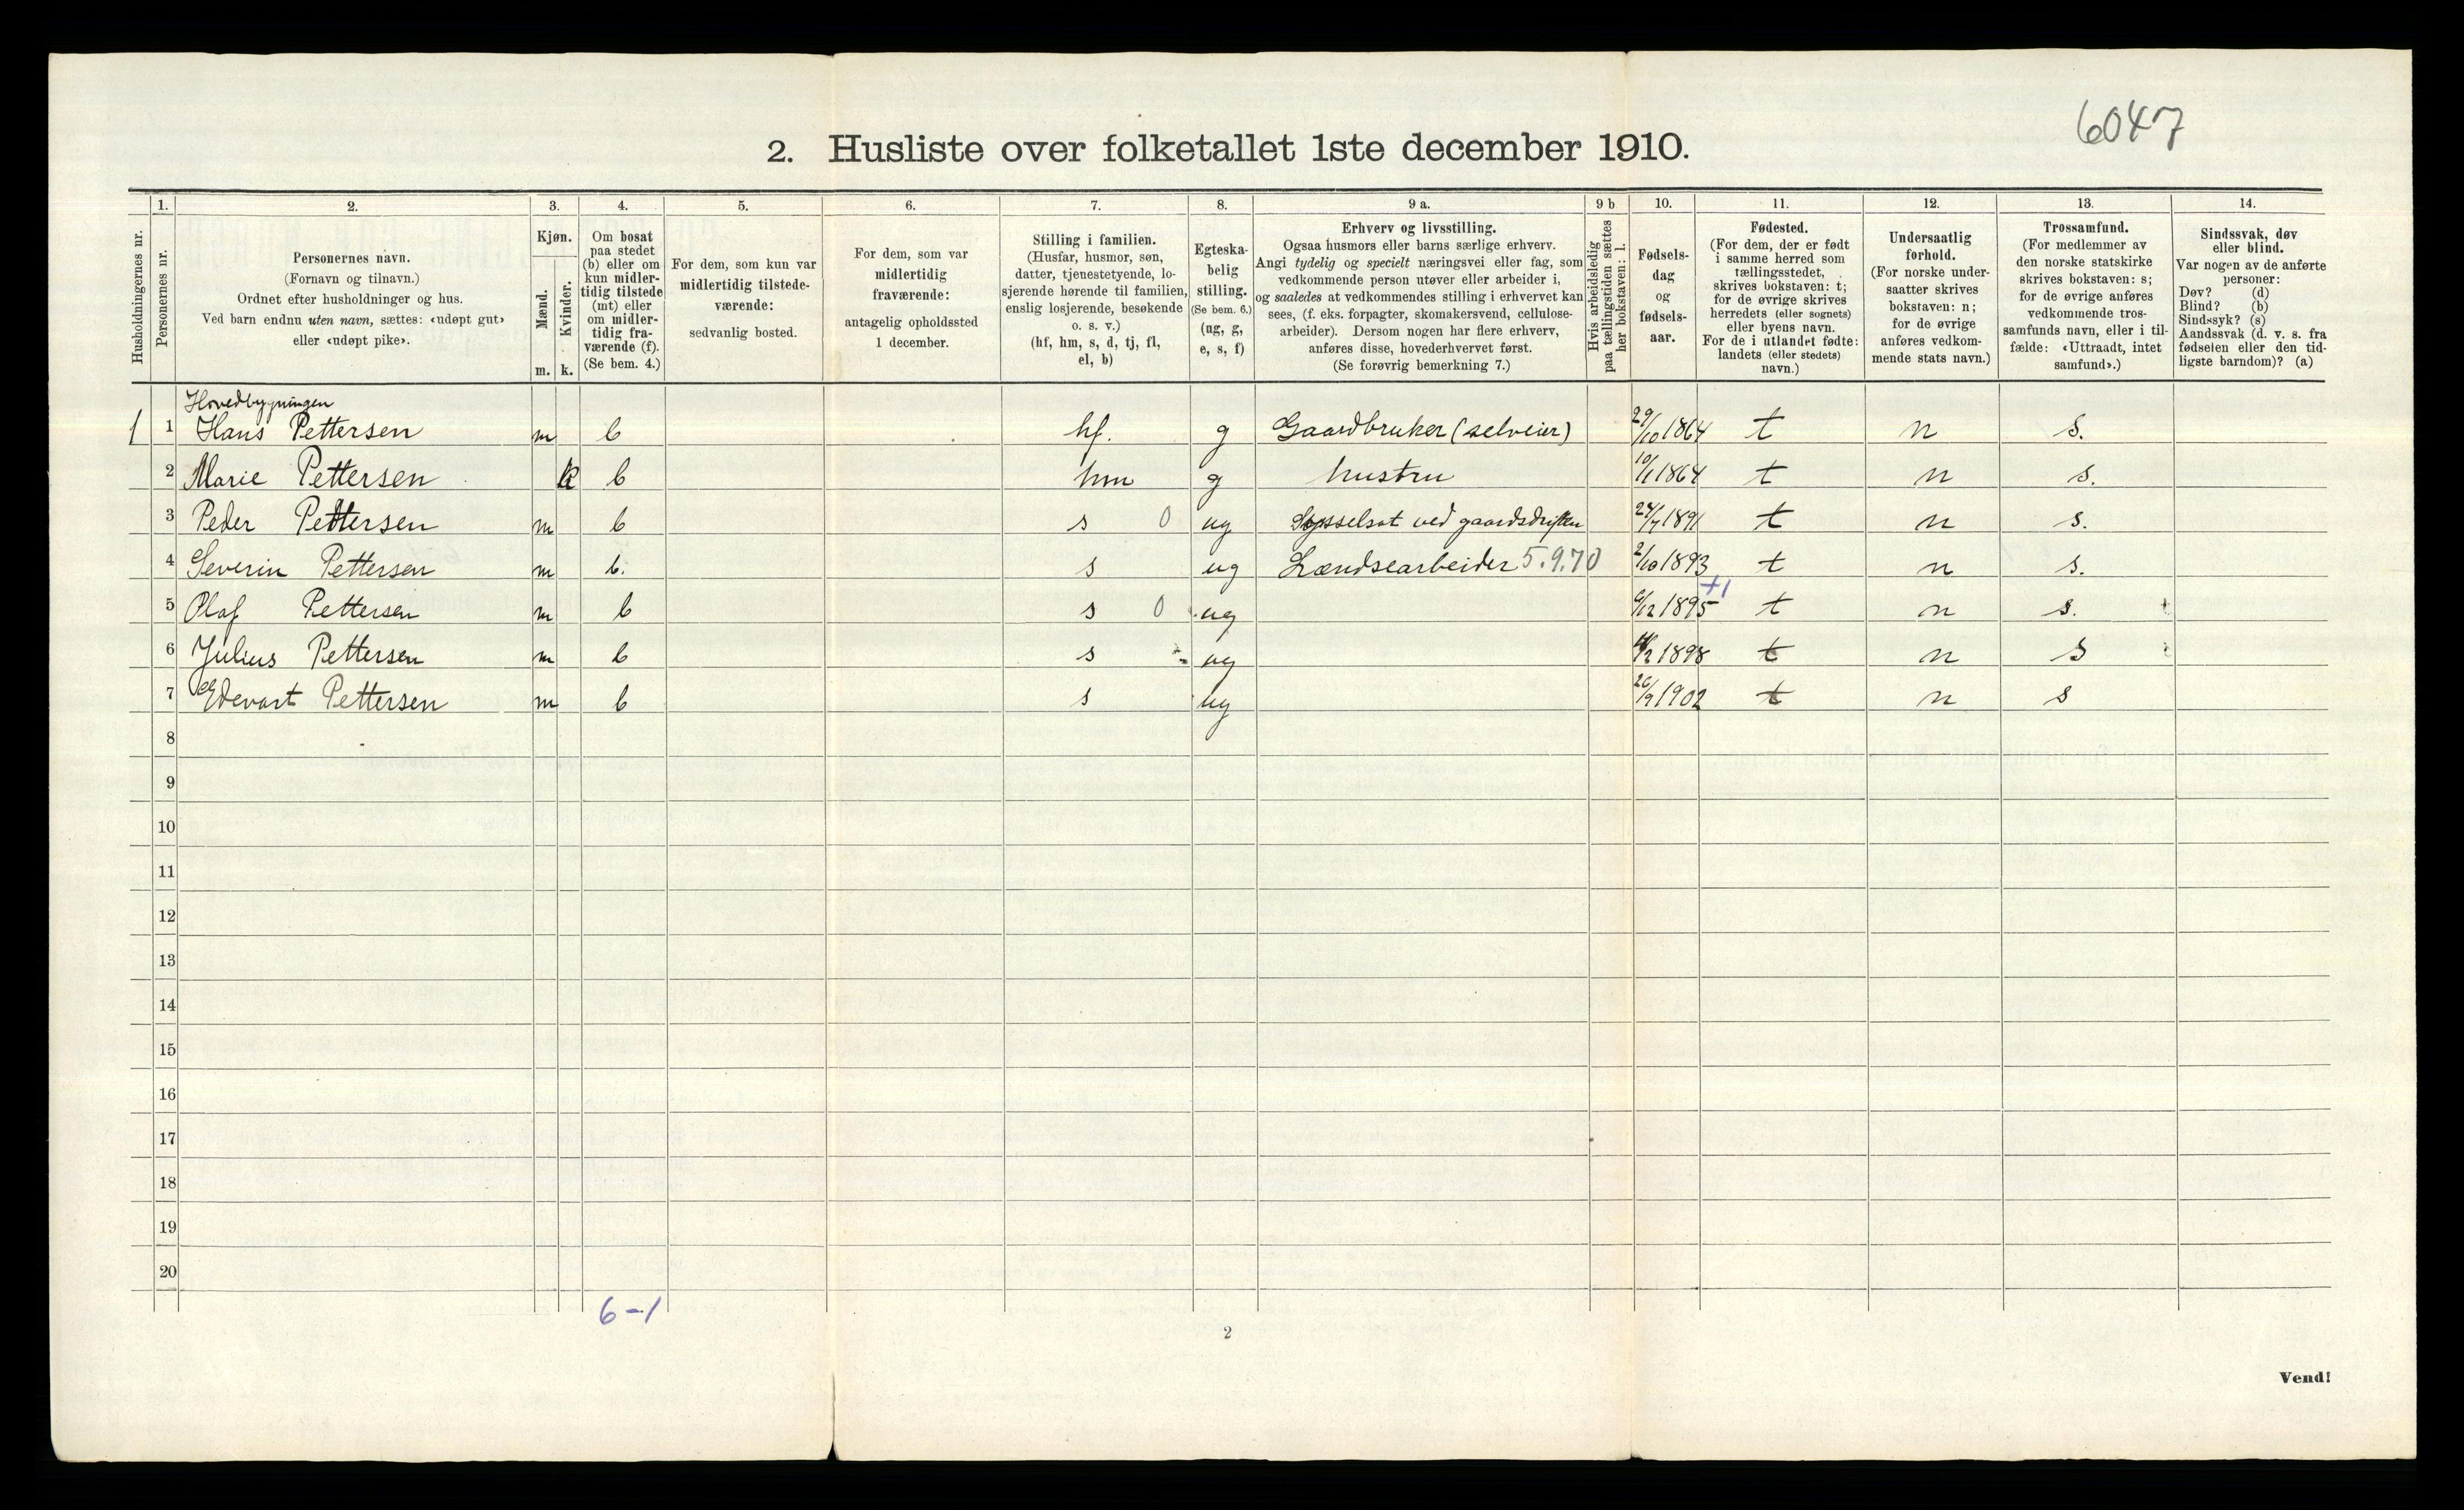 6047
2. Husliste over folketallet 1ste december 1910.
1. 2. 3. 4. 5. 6. 7. 8. 9 a. 9 b 10. 11. 12. 13. 14.
Husholdningernes nr.
Personernes nr.
Personernes navn.
(Fornavn og tilnavn.)
Ordnet efter husholdninger og hus.
Ved barn endnu uten navn, sættes: «udøpt gut»
eller «udøpt pike».
Kjøn.
Mænd.
Kvinder.
m. k.
Om bosat
paa stedet
(b) eller om
kun midler-
tidig tilstede
(mt) eller
om midler-
tidig fra-
værende (f).
(Se bem. 4.)
For dem, som kun var
midlertidig tilstede-
værende:
sedvanlig bosted.
For dem, som var
midlertidig
fraværende:
antagelig opholdssted
1 december.
Stilling i familien.
(Husfar, husmor, søn,
datter, tjenestetyende, lo-
sjerende hørende til familien,
enslig losjerende, besøkende
o. s. v.)
(hf, hm, s, d, tj, fl,
el, b)
Egteska-
belig
stilling.
(Se bem. 6.)
(ug, g,
e, s, f)
Erhverv og livsstilling.
Ogsaa husmors eller barns særlige erhverv.
Angi tydelig og specielt næringsvei eller fag, som
vedkommende person utøver eller arbeider i,
og saaledes at vedkommendes stilling i erhvervet kan
sees, (f. eks. forpagter, skomakersvend, cellulose-
arbeider). Dersom nogen har flere erhverv,
anføres disse, hovederhvervet først.
(Se forøvrig bemerkning 7.)
Hvis arbeidsledig
paa tællingstiden sættes
her bokstaven: l.
Fødsels-
dag
og
fødsels-
aar.
Fødested.
(For dem, der er født
i samme herred som
tællingsstedet,
skrives bokstaven: t;
for de øvrige skrives
herredets (eller sognets)
eller byens navn.
For de i utlandet fødte:
landets (eller stedets)
navn.)
Undersaatlig
forhold.
(For norske under-
saatter skrives
bokstaven: n;
for de øvrige
anføres vedkom-
mende stats navn.)
Trossamfund.
(For medlemmer av
den norske statskirke
skrives bokstaven: s;
for de øvrige anføres
vedkommende tros-
samfunds navn, eller i til-
fælde: «Uttraadt, intet
samfund».)
Sindssvak, døv
eller blind.
Var nogen av de anførte
personer:
Døv? (d)
Blind? (b)
Sindssyk? (s)
Aandssvak (d. v. s. fra
fødselen eller den tid-
ligste barndom)? (a)
Hovedbygningen
1 1 Hans Pettersen m b hf. g Gaardbruker (selveier) 29/10 1864 t n s.
2 Marie Pettersen k b hm g hustru 10/1 1864 t n s.
3 Peder Pettersen m b s 0 ug Sysselsat ved gaardsdriften 24/7 1891 t n s.
4 Severin Pettersen m b. s ug Lændsearbeider 5.9.70 2/10 1893 t n s.
+1
5 Olaf Pettersen m b s 0 ug 6/12 1895 t n s.
6 Julius Pettersen m b s ug 1898 t n s
7 Edevart Pettersen m b s ug 26/9 1902 t n s
8
9
10
11
12
13
14
15
16
17
18
19
20
6-1
2
Vend!